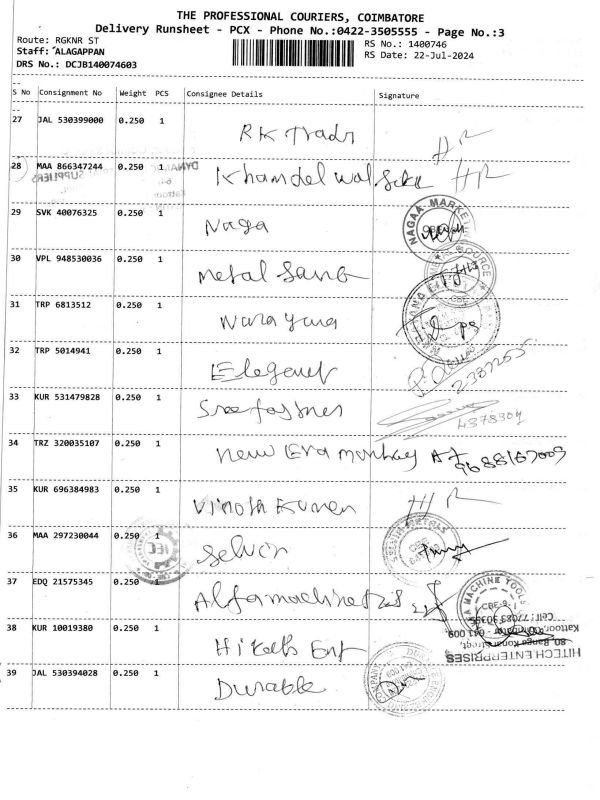 THE PROFESSIONAL COURIERS, COIMBATORE
Delivery Runsheet - PCX - Phone No.:0422-3505555 - Page No.:3
Route: RGKNR ST
RS No.: 1400746
Staff: ALAGAPPAN
RS Date: 22-Jul-2024
DRS No.: DCJB140074603
S No Consignment No Weight PCS Consignee Details Signature
27 JAL 530399000 0.250 1 RK Trads HR
28 MAA 866347244 0.250 1 Khandelwal HR
SUPPLIERS
29 SVK 40076325 0.250 1 Naga
NAGAA MARKE
30 VPL 948530036 0.250 1 Metal Sang
31 TRP 6813512 0.250 1 Narayana
32 TRP 5014941 0.250 1 Elegant
2387255
33 KUR 531479828 0.250 1 Sree fasner
4378309
34 TRZ 320035107 0.250 1 New Era
35 KUR 696384983 0.250 1 Vinoth Kumar HR
36 MAA 297230044 0.250 1 Selvin
37 EDQ 21575345 0.250 1 Alfa machine
MACHINE TOOLS
38 KUR 10019380 0.250 1 Hitech Ent
HITECH ENTERPRISES
39 JAL 530394028 0.250 1 Durable